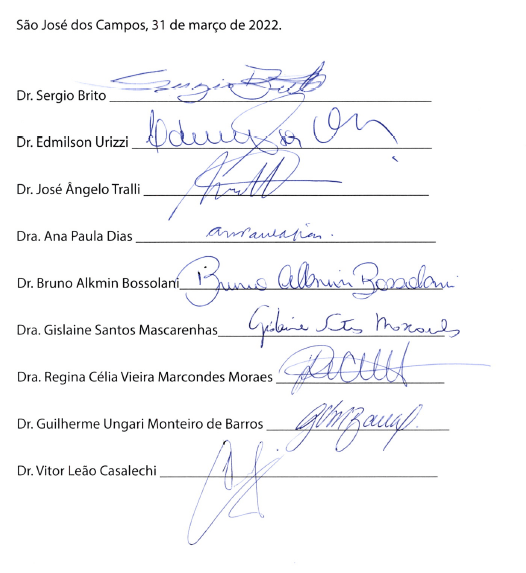 São José dos Campos, 31 de março de 2022.
Dr. Sergio Brito Sergio Brito
Dr. Edmilson Urizzi Edmilson
Dr. José Ângelo Tralli
Dra. Ana Paula Dias
Dr. Bruno Alkmin Bossolani Bruno Alkmin Bossolani
Dra. Gislaine Santos Mascarenhas Gislaine
Dra. Regina Célia Vieira Marcondes Moraes
Dr. Guilherme Ungari Monteiro de Barros
Dr. Vitor Leão Casalechi